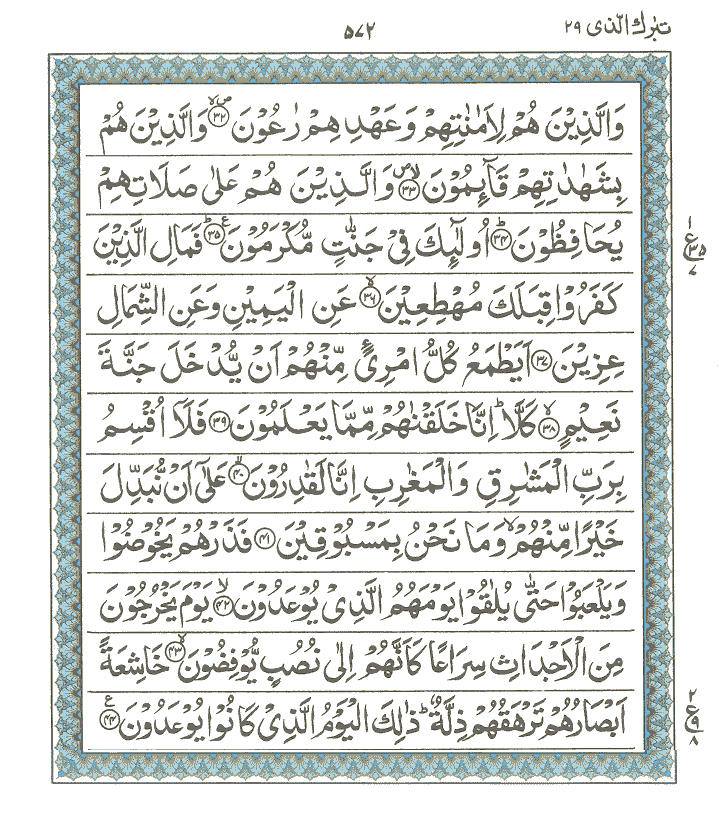 تبٰرك الّذی ٢٩
٥٧٢
وَالَّذِيْنَ هُمْ لِاَمٰنٰتِهِمْ وَعَهْدِهِمْ رٰعُوْنَ ۪ۙۙ‏﴿۳۲﴾ وَالَّذِيْنَ هُمْ
بِشَهٰدٰتِهِمْ قَآئِمُوْنَ ۪ۙ‏﴿۳۳﴾ وَالَّذِيْنَ هُمْ عَلٰى صَلَاتِهِمْ
يُحَافِظُوْنَ ؕ‏﴿۳۴﴾ اُولٰٓئِكَ فِىْ جَنّٰتٍ مُّكْرَمُوْنَ ؕ ع‏﴿۳۵﴾ فَمَالِ الَّذِيْنَ
كَفَرُوْا قِبَلَكَ مُهْطِعِيْنَ ۙ‏﴿۳۶﴾ عَنِ الْيَمِيْنِ وَعَنِ الشِّمَالِ
عِزِيْنَ ﴿۳۷﴾ اَيَطْمَعُ كُلُّ امْرِئٍ مِّنْهُمْ اَنْ يُّدْخَلَ جَنَّةَ
نَعِيْمٍ ۙ‏﴿۳۸﴾ كَلَّا ؕ اِنَّا خَلَقْنٰهُمْ مِّمَّا يَعْلَمُوْنَ ﴿۳۹﴾ فَلَاۤ اُقْسِمُ
بِرَبِّ الْمَشٰرِقِ وَالْمَغٰرِبِ اِنَّا لَقٰدِرُوْنَ ۙ‏﴿۴۰﴾ عَلٰٓى اَنْ نُّبَدِّلَ
خَيْرًا مِّنْهُمْ ۙ وَمَا نَحْنُ بِمَسْبُوْقِيْنَ ﴿۴۱﴾ فَذَرْهُمْ يَخُوْضُوْا
وَيَلْعَبُوْا حَتّٰى يُلٰقُوْا يَوْمَهُمُ الَّذِىْ يُوْعَدُوْنَ ۙ‏﴿۴۲﴾ يَوْمَ يَخْرُجُوْنَ
مِنَ الْاَجْدَاثِ سِرَاعًا كَاَنَّهُمْ اِلٰى نُصُبٍ يُّوْفِضُوْنَ ۙ‏﴿۴۳﴾ خَاشِعَةً
اَبْصَارُهُمْ تَرْهَقُهُمْ ذِلَّةٌ ؕ ذٰلِكَ الْيَوْمُ الَّذِىْ كَانُوْا يُوْعَدُوْنَ ع‏﴿۴۴﴾
١
ع ٣٥
٧
٢
ع ٩
٨